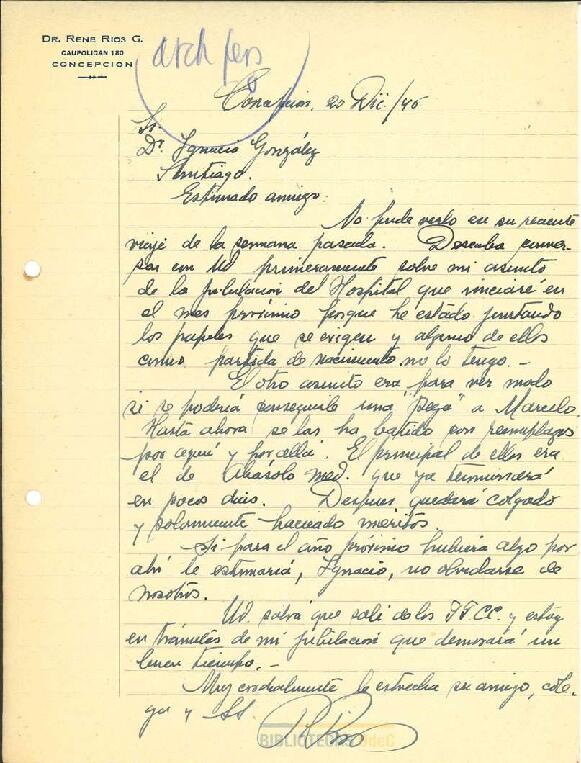 DR. RENE RIOS G.
CAUPOLICAN 180
CONCEPCION
arch pers
Concepcion, 20 Dic/45
Sr.
Dr. Ignacio González
Santiago.
Estimado amigo:
No pude verlo en su reciente
viaje de la semana pasada. Deseaba conver-
sar con Ud primeramente sobre mi asunto
de la jubilacion del Hospital que iniciaré en
el mes próximo porque he estado juntando
los papeles que se exigen y alguno de ellos
como partida de nacimiento no lo tengo.-
El otro asunto era para ver modo
si se podría conseguirle una "pega" a Marcelo.
Hasta ahora se las ha batido con reemplazos
por aquí y por allá. El principal de ellos era
el de Abásolo Med. que ya terminará
en pocos dias. Despues quedará colgado
y solamente haciendo meritos.
Si para el año próximo hubiera algo por
ahí le estimaría, Ignacio, no olvidarse de
nosotros.
Ud. sabrá que salí de los FF.CC. y estoy
en trámites de mi jubilacion que demorará un
buen tiempo.-
Muy cordialmente le estrecha su amigo, cole-
ga y SS.
R Rios
BIBLIOTECAS UdeC